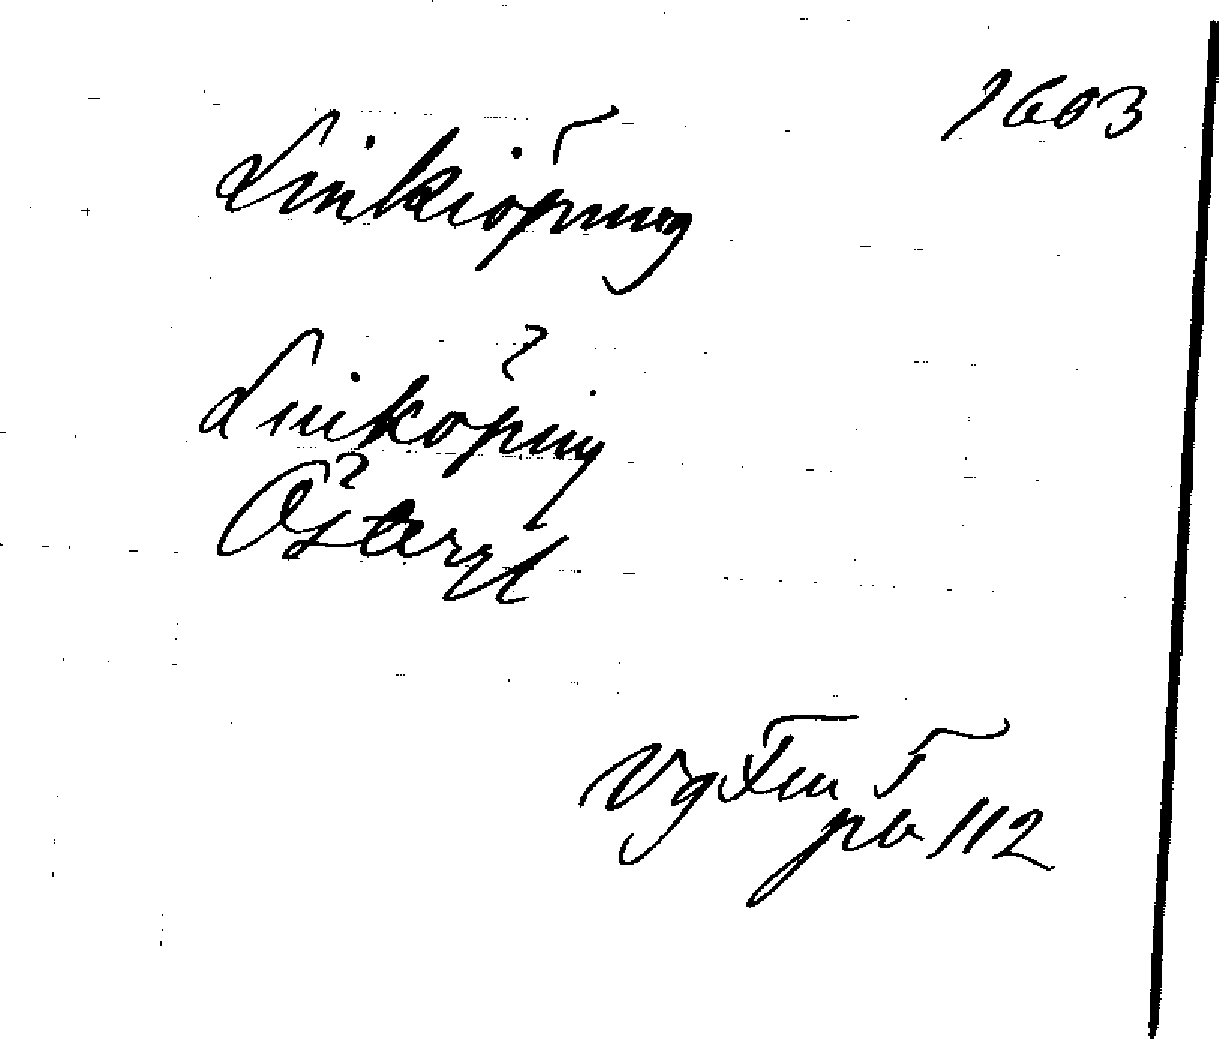 1603
Linkiöping
Linköping
Östergl
Vg Fem I
pb 112